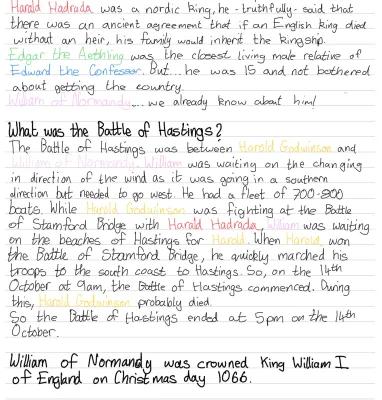 Harald Hadrada was a nordic king, he - truthfully - said that
there was an ancient agreement that if an English king died
without an heir, his family would inherit the kingship.
Edgar the Aethling was the closest living male relative of
Edward the Confessor. But... he was 15 and not bothered
about getting the country.
William of Normandy... we already know about him!
What was the Battle of Hastings?
The Battle of Hastings was between Harold Godwinson and
William of Normandy. William was waiting on the changing
in direction of the wind as it was going in a southern
direction but needed to go west. He had a fleet of 700-800
boats. While Harold Godwinson was fighting at the Battle
of Stamford Bridge with Harald Hadrada, William was waiting
on the beaches of Hastings for Harold. When Harold won
the Battle of Stamford Bridge, he quickly marched his
troops to the south coast to Hastings. So, on the 14th
October at 9am, the Battle of Hastings commenced. During
this, Harold Godwinson probably died.
So the Battle of Hastings ended at 5pm on the 14th
October.
William of Normandy was crowned King William I
of England on Christmas day 1066.